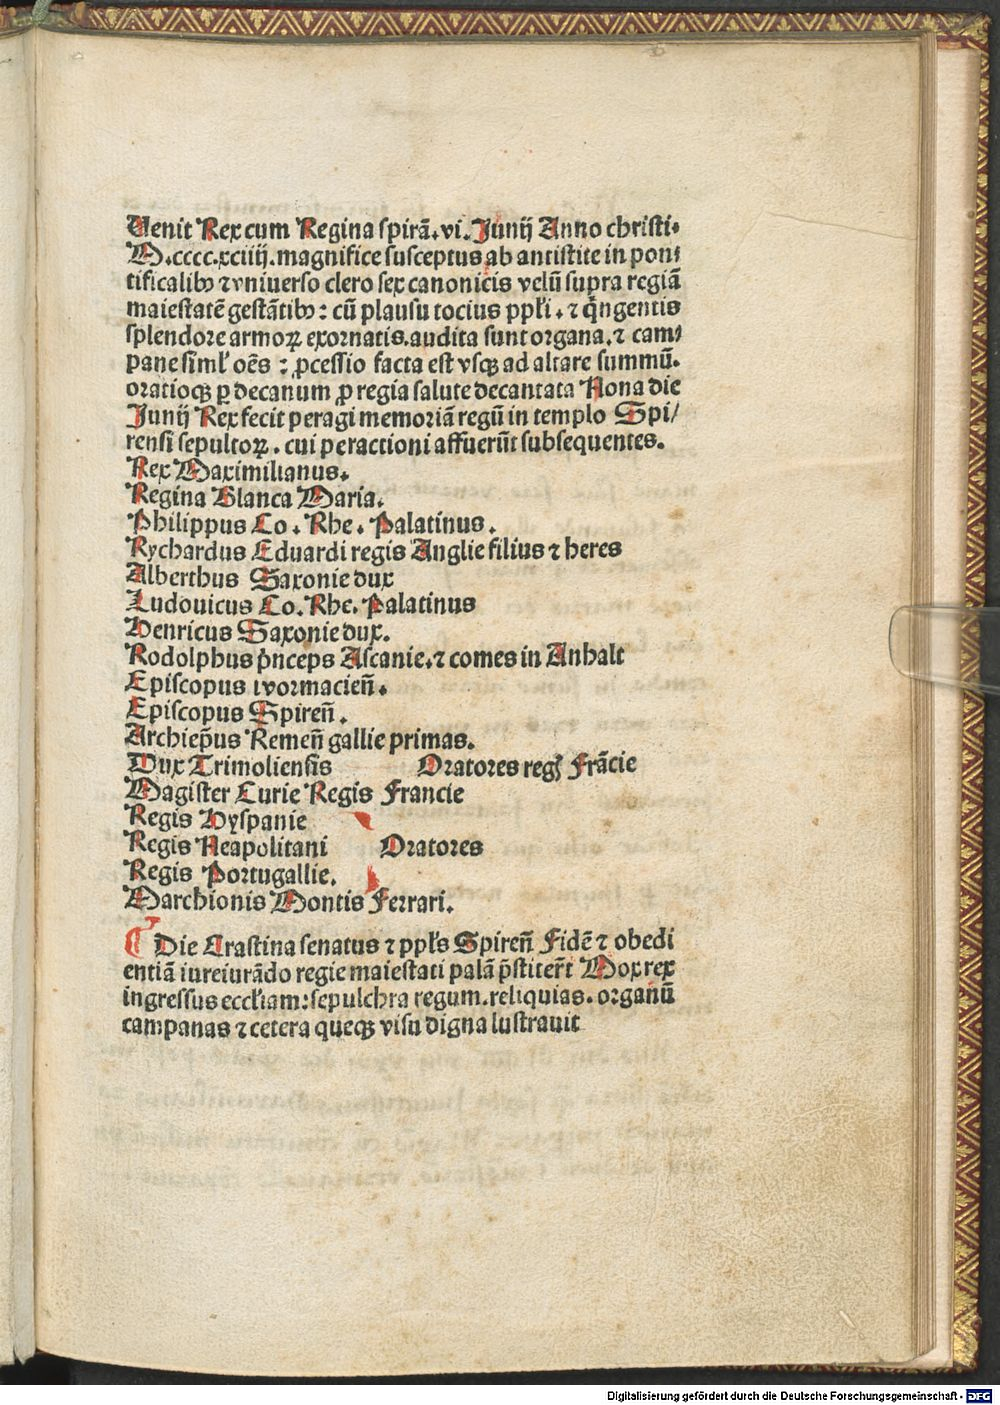 Uenit Rex cum Regina spirã. vi. Junij Anno christi.
M.cccc.xciiij. magnifice susceptus ab antistite in pon⸗
tificalibꝰ ⁊ vniuerso clero sex canonicis velũ supra regiã
maiestatẽ gestãtibꝰ: cũ plausu tocius ppl̄i. ⁊ q̃ngentis
splendore armoꝝ exornatis. audita sunt organa. ⁊ cam⸗
pane siml̄ oẽs : ꝓcessio facta est vsqꝫ ad altare summũ.
oratioqꝫ ꝑ decanum ꝓ regia salute decantata Nona die
Junij Rex fecit peragi memoriã regũ in templo Spi/
rensi sepultoꝝ. cui peractioni affuerũt subsequentes.
Rex Maximilianus.
Regina Blanca Maria.
Philippus Co. Rhe. Palatinus.
Rychardus Eduardi regis Anglie filius ⁊ heres
Alberthus Saxonie dux
Ludouicus Co. Rhe. Palatinus
Henricus Saxonie dux.
Rodolphus p̃nceps Ascanie. ⁊ comes in Anhalt
Episcopus wormacieñ.
Episcopus Spireñ.
Archiep̃us Remeñ gallie primas.
Dux Trimoliensis Oratores regꝭ Frãcie
Magister Curie Regis Francie
Regis Hyspanie
Regis Neapolitani Oratores
Regis Portugallie.
Marchionis Montis Ferrari.
¶ Die Crastina senatus ⁊ ppl̄s Spireñ Fidẽ ⁊ obedi
entiã iureiurãdo regie maiestati palã p̃stiter̃t Mox rex
ingressus eccl̄iam: sepulchra regum. reliquias. organũ
campanas ⁊ cetera queqꝫ visu digna lustrauit
Digitalisierung gefördert durch die Deutsche Forschungsgemeinschaft - DFG